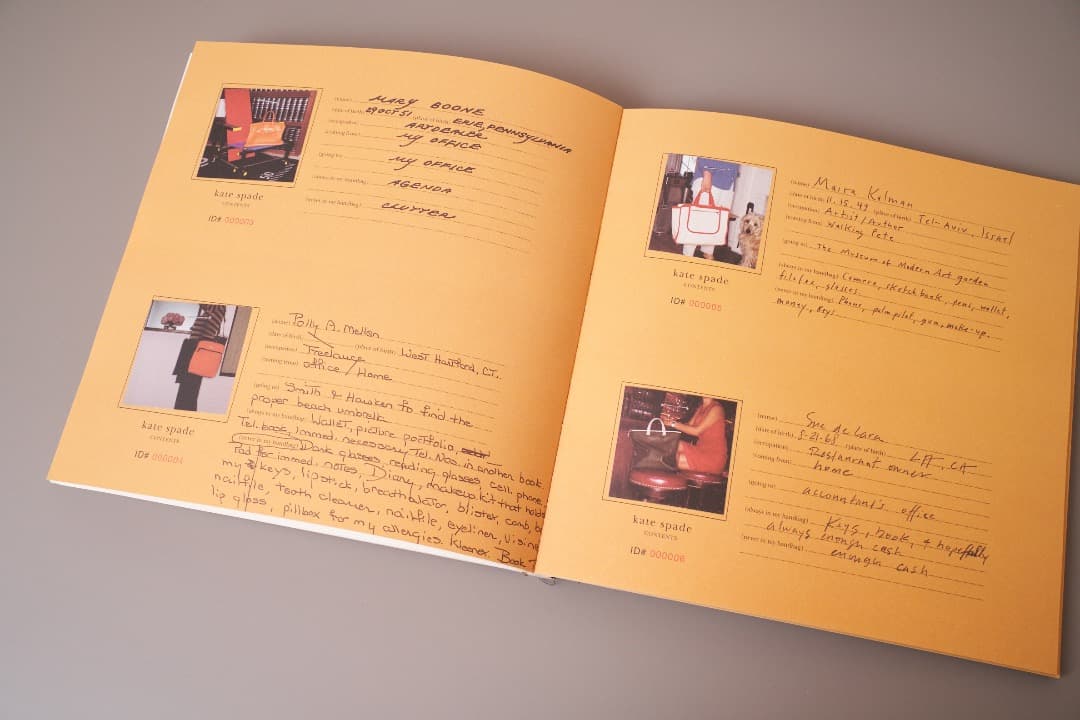 (name) MARY BOONE
(date of birth) 29 OCT 51 (place of birth) ERIE, PENNSYLVANIA
(occupation) ART DEALER
(coming from) MY OFFICE
(going to) MY OFFICE
(always in my handbag) AGENDA
(never in my handbag) CLUTTER
kate spade
CONTENTS
ID# 000003
(name) Polly A. Mellen
(date of birth) (place of birth) West Hartford, CT.
(occupation) Freelance
(coming from) office / Home
(going to) Smith & Hawken to find the
proper beach umbrella
(always in my handbag) Wallet, picture portfolio,
Tel. book, immed. necessary Tel. Nos. in another book,
(never in my handbag) Dark glasses, reading glasses, cell phone,
Pad for immed. notes, Diary, makeup kit that holds
my keys, lipstick, breathalator, blister, comb,
nailfile, tooth cleaner, nailfile, eyeliner, Visine
lip gloss, pillbox for my allergies. Kleenex. Book
kate spade
CONTENTS
ID# 000004
(name) Maira Kalman
(date of birth) 11.15.49 (place of birth) Tel-Aviv, Israel
(occupation) Artist/Author
(coming from) Walking Pete
(going to) The Museum of Modern Art garden
(always in my handbag) Camera, sketchbook, pens, wallet,
filofax, glasses
(never in my handbag) Phone, palm pilot, gum, make-up,
money, keys
kate spade
CONTENTS
ID# 000005
(name) Sue de Lara
(date of birth) 8-21-68 (place of birth) LA, CA
(occupation) Restaurant owner
(coming from) home
(going to) accountant's office
(always in my handbag) Keys, book, + hopefully
always enough cash
(never in my handbag) enough cash
kate spade
CONTENTS
ID# 000006